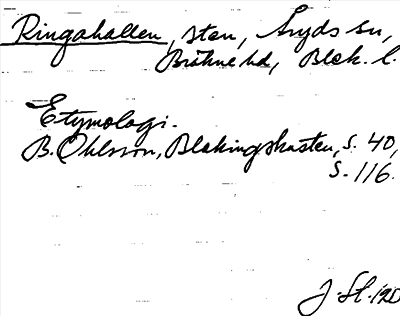 Ringahallen, sten, Åryds sn,
Bräkne hd, Blek. l.
Etymologi.
B. Ohlsson, Blekingskusten, s. 40,
s. 116.